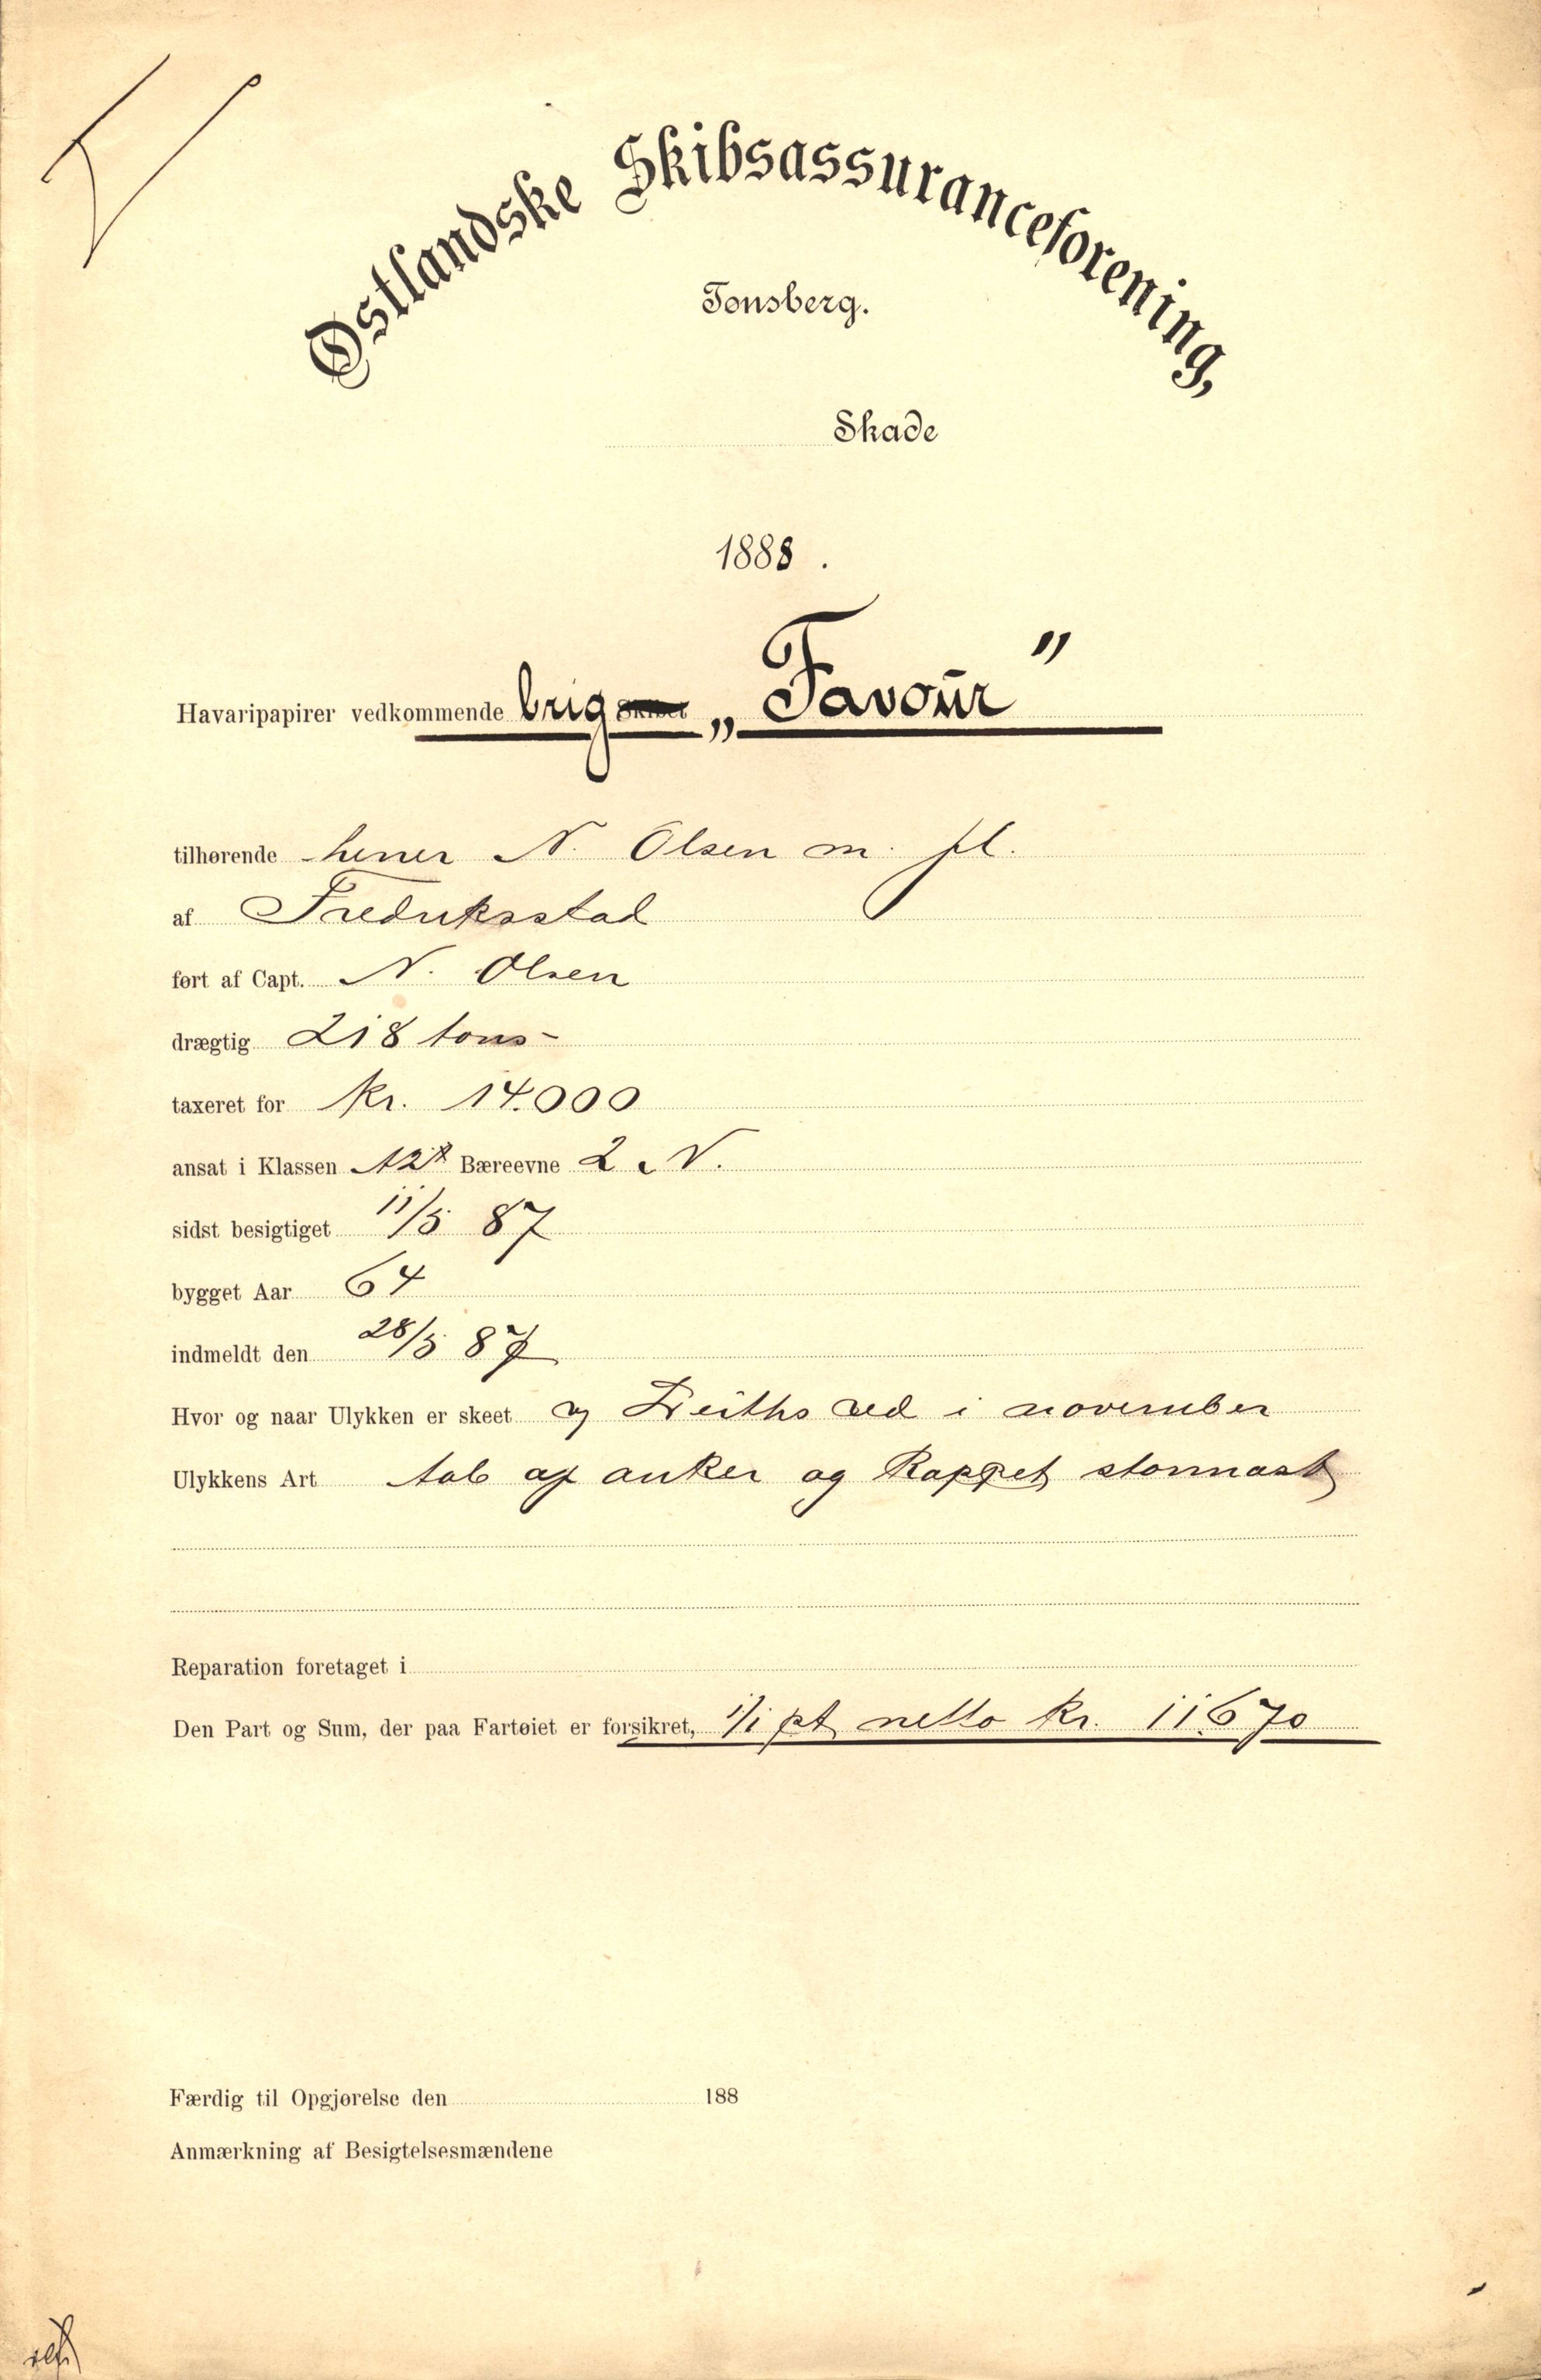 Østlandske Skibsassuranceforening,
Tønsberg.
Skade
1888.
Havaripapirer vedkommende brig „Favour"
tilhørende herrer N. Olsen m. fl.
af Fredriksstad
ført af Capt. N. Olsen
drægtig 218 tons
taxeret for Kr. 14.000
ansat i Klassen A2 Bæreevne 2 N.
sidst besigtiget 11/5 87
bygget Aar 64
indmeldt den 28/5 87
Hvor og naar Ulykken er skeet Leiths red i november
Ulykkens Art tab af anker og Kappet stormast
Reparation foretaget i
Den Part og Sum, der paa Fartøiet er forsikret, 1/1 pt netto Kr. 11670
Færdig til Opgjørelse den 188
Anmærkning af Besigtelsesmændene